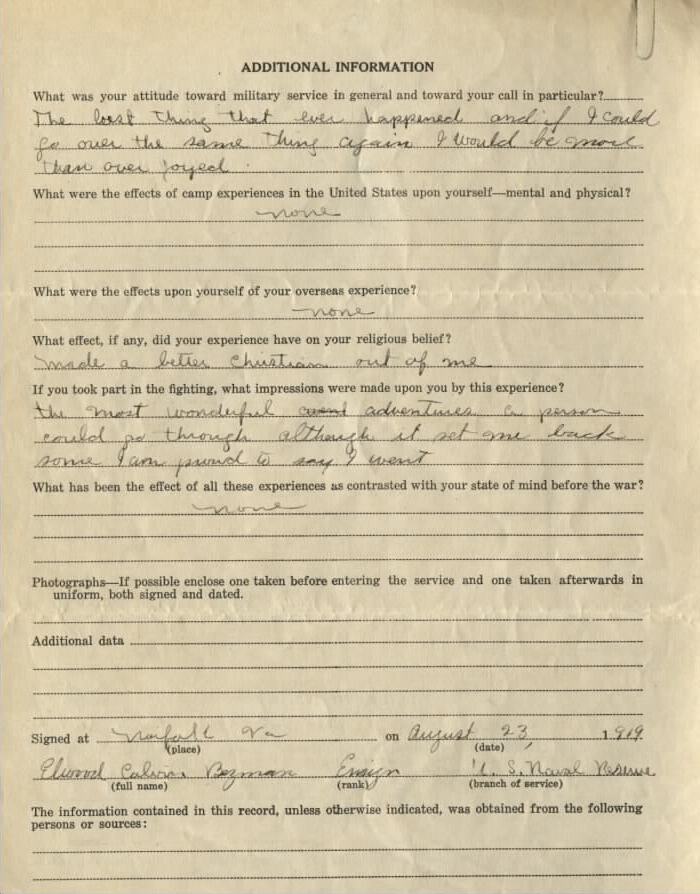 ADDITIONAL INFORMATION
What was your attitude toward military service in general and toward your call in particular?
The best thing that ever happened and if I could
go over the same thing again I would be more
than over joyed.
What were the effects of camp experiences in the United States upon yourself—mental and physical?
none
What were the effects upon yourself of your overseas experience?
none
What effect, if any, did your experience have on your religious belief?
made a better Christian out of me
If you took part in the fighting, what impressions were made upon you by this experience?
the most wonderful adventures a person
could go through although it set me back
some I am proud to say I went
What has been the effect of all these experiences as contrasted with your state of mind before the war?
none
Photographs—If possible enclose one taken before entering the service and one taken afterwards in
uniform, both signed and dated.
Additional data
Signed at Norfolk Va on August 23, 1919
(place) (date)
Elwood Calvin Bozman Ensign U. S. Naval Reserve
(full name) (rank) (branch of service)
The information contained in this record, unless otherwise indicated, was obtained from the following
persons or sources: